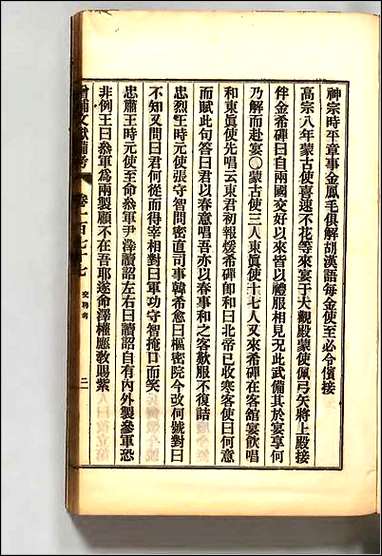 神宗時平章事金鳳毛俱解胡漢語每金使至必令儐接
高宗八年蒙古使喜速不花等來宴于大觀殿蒙使佩弓矢將上殿接
伴金希磾曰自兩國交好以來皆以禮服相見況此武備其於宴享何
乃解而赴宴〇蒙古使三人東眞使十七人又來希磾在客舘宴飮唱
和東眞使先唱云東君初報煖希磾卽和曰北帝已收寒客使曰何意
而賦此句答曰君以春意唱吾亦以春事和之客歎服不復詰
忠烈王時元使張守智問密直司事韓希愈曰樞密院今改何號對曰
不知又問曰君何從而得宰相對曰軍功守智掩口而笑
忠肅王時元使至命叅軍尹澤讀詔左右曰讀詔自有內外製叅軍恐
非例王曰叅軍爲兩製顧不在吾耶遂命澤權應敎賜紫
增補文獻備考 卷一百七十七 交聘考 二